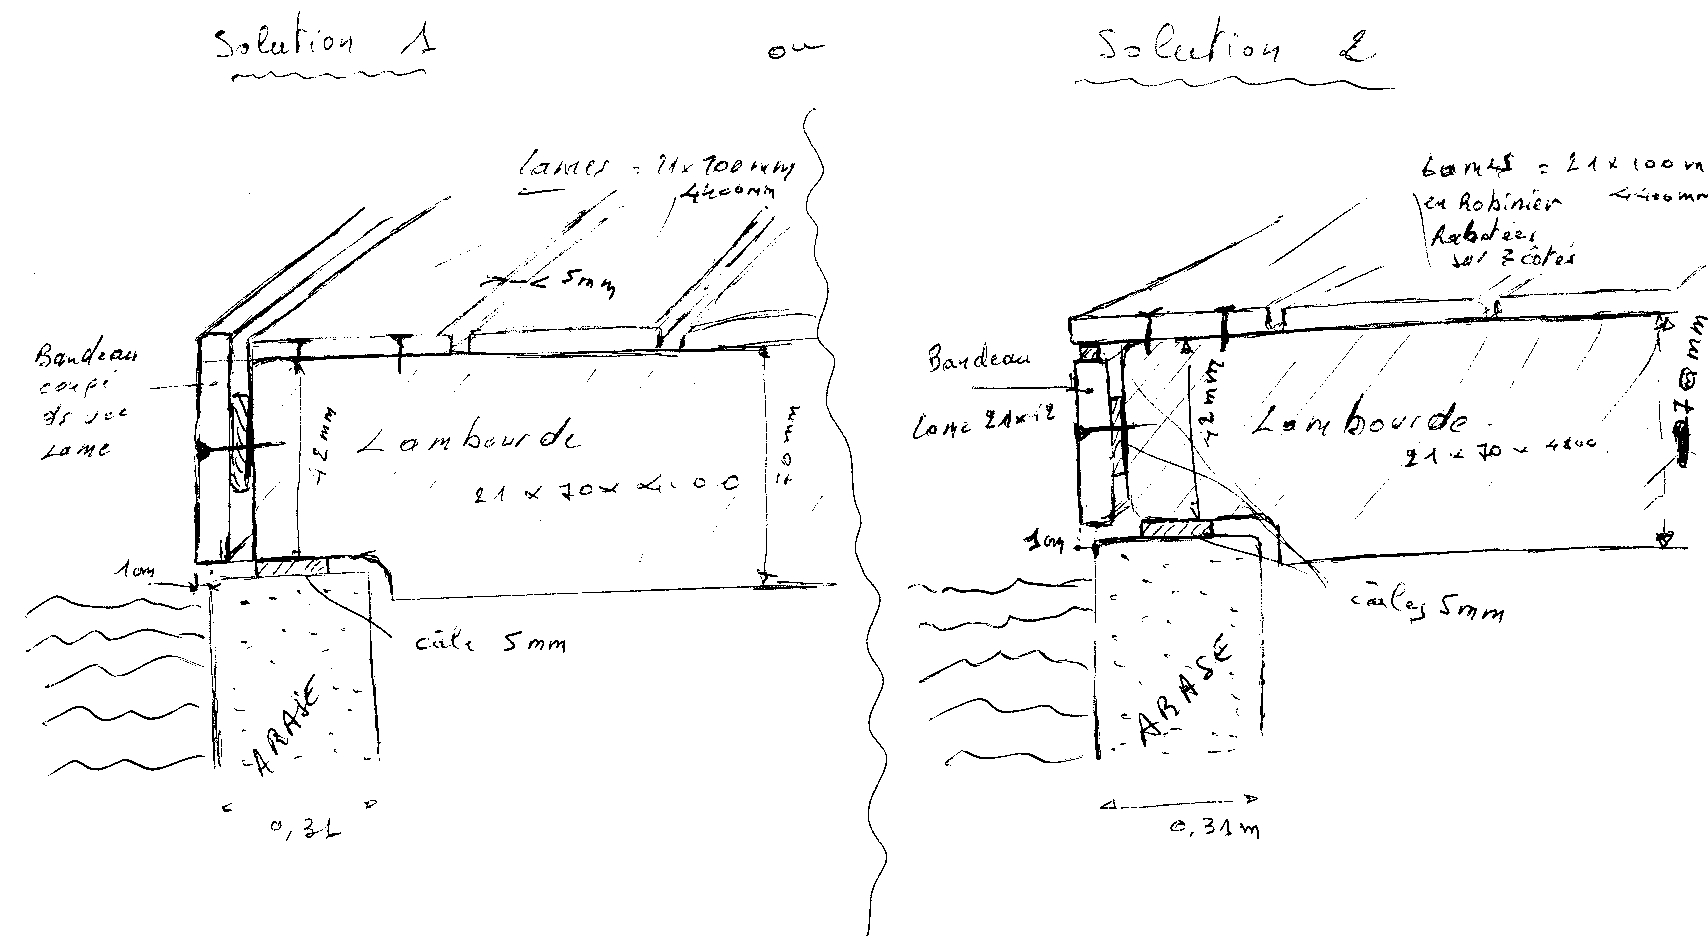 Solution 1
ou
Solution 2
Lames = 21x100mm
4400mm
5mm
Bandeau
coupé
ds une
Lame
42mm
Lambourde
21 x 70 x 4.00
70mm
1cm
câle 5mm
ARASE
0,31
Lames = 21 x 100 m
en Robinier 4400mm
Rabotées
sur 3 côtés
Bandeau
Lame 21x12
42mm
Lambourde
21 x 70 x 4800
70mm
1cm
câles 5mm
ARASE
0,31m